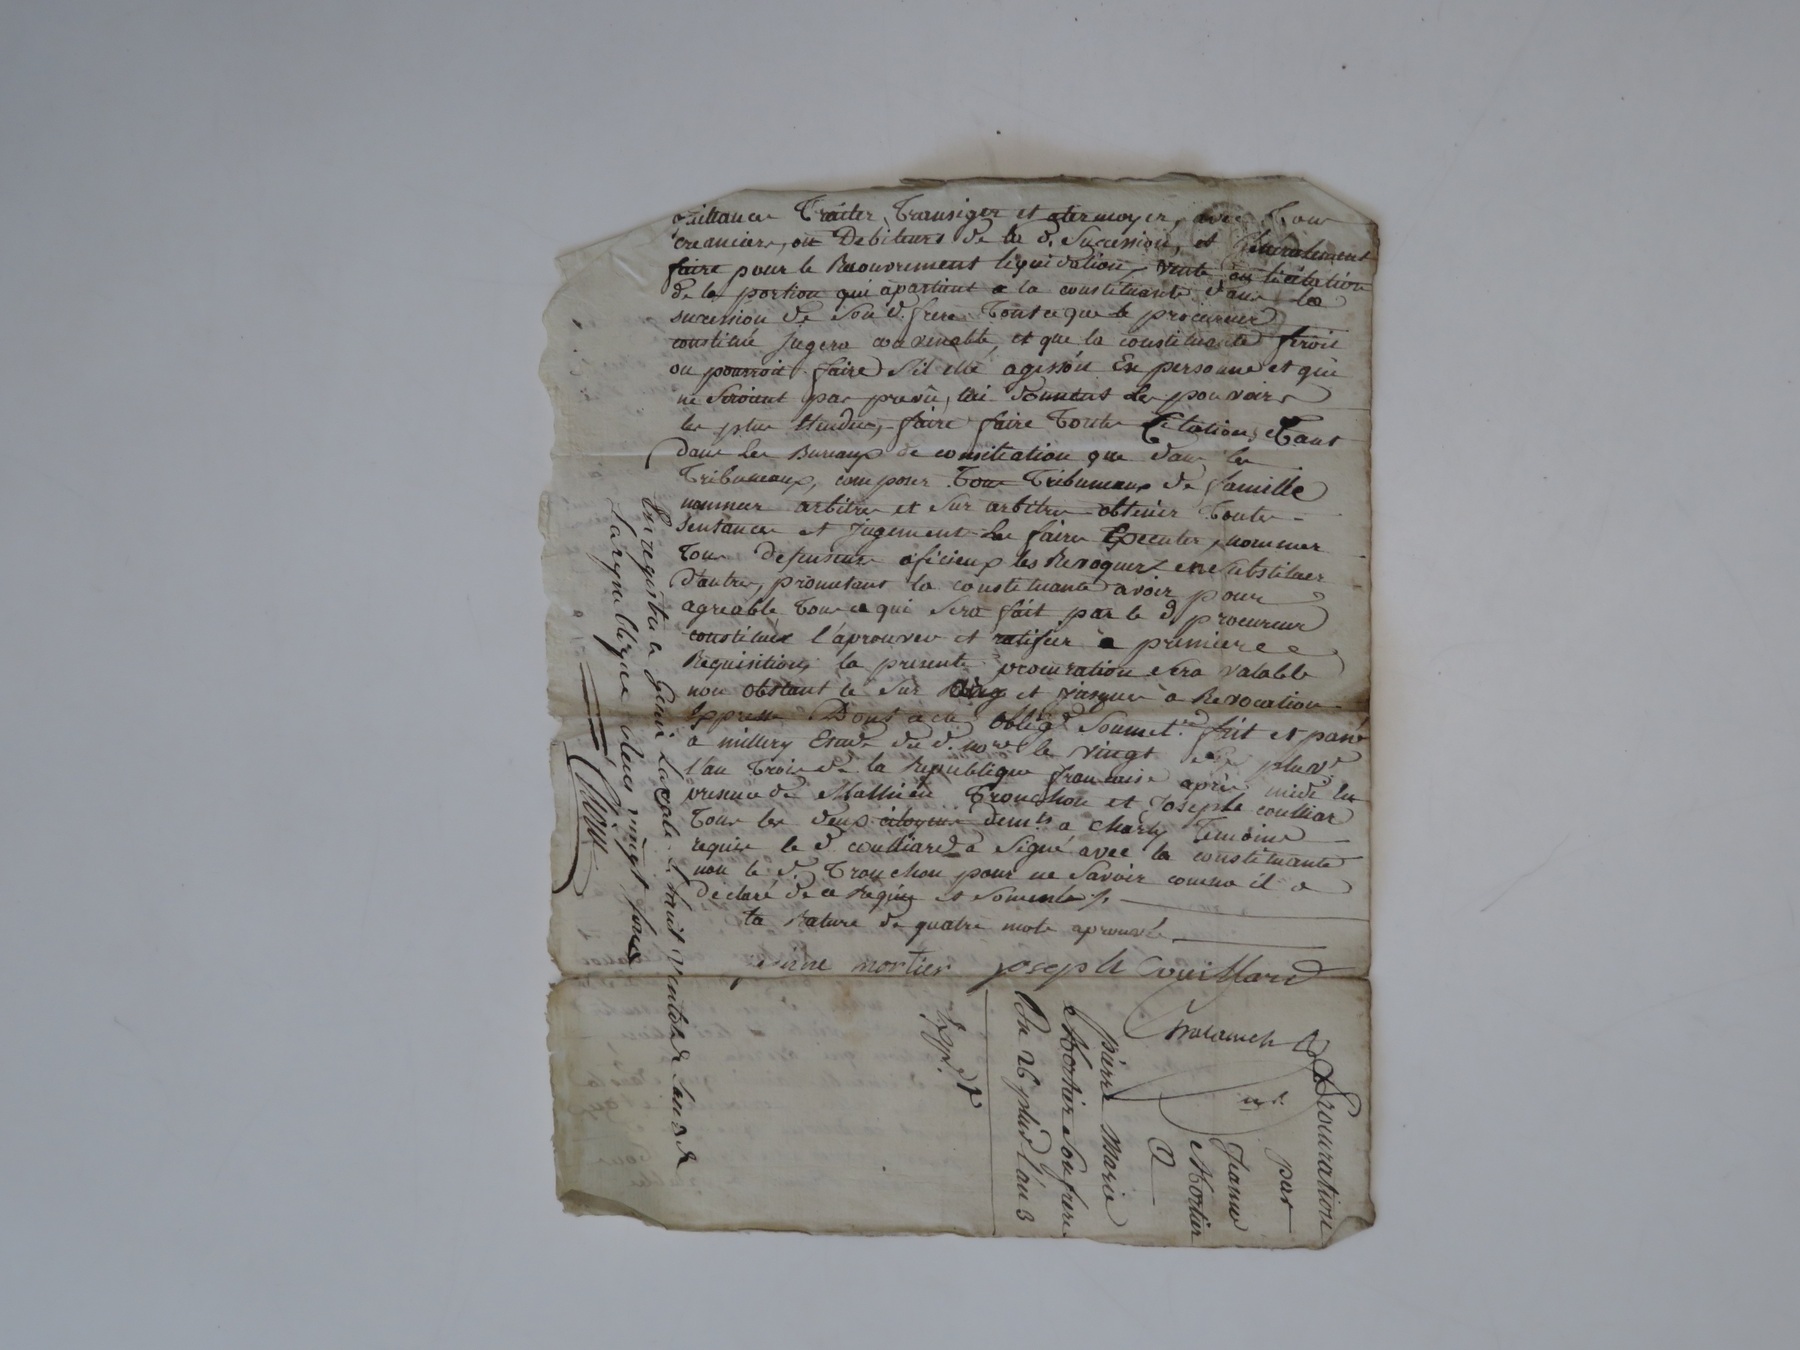 quittance Traiter, Transiger et atermoyer, avec Tous
creanciers, ou Debiteurs de la d. Succession, et Generalement
faire pour le Recouvrement liquidation, vente ou licitation
de la portion qui apartient a la constituante dans la
succession de Son d. frere Tout ce que le procureur
constitué Jugera convenable, et que la constituante feroit
ou pourroit faire S'il elle agissoit En personne et qui
ne Seroient pas prevû, lui donnent les pouvoirs
les plus Etendus, faire faire Toutes Citations, Tant
dans les Bureaux de conciliation que dans les
Tribunaux, composer Tous Tribunaux de famille
nommer arbitres et Sur arbitres obtenir Toutes
Sentances et Jugements les faire Executer, nommer
Tous defenseurs oficieux les Revoquer en Substituer
d'autres, promettant la constituante avoir pour
agreable Tous ce qui Sera fait par le d procureur
constitué l'aprouver et ratifier a premiere
Requisition, la presente procuration Sera valable
non obstant le Sur et Jusques a Revocation
Expresse Dont acte oblig. Soumet. fait et passé
a millery Etude du d. no.re le vingt pluv.
l'an Trois de la Republique francaise après midi En
presence de Mathieu Tronchon et Joseph coulliar
Tous les deux citoyens dem.ts a Charly Temoins
requis le d coulliard a Signé avec la constituante
non le d. Tronchon pour ne Savoir comme il a
declaré de ce Requis et Sommé
la Rature de quatre mots aprouvée
mortier Joseph Couillard
Enregistré a Genis Laval le huit ventose l'an 3 de
la republique vingt Sous
Procuration
par
Jeanne
Mortier
a
pierre Marie
Mortier Son frere
Du 26 pluv. l'an 3
Exp. d.